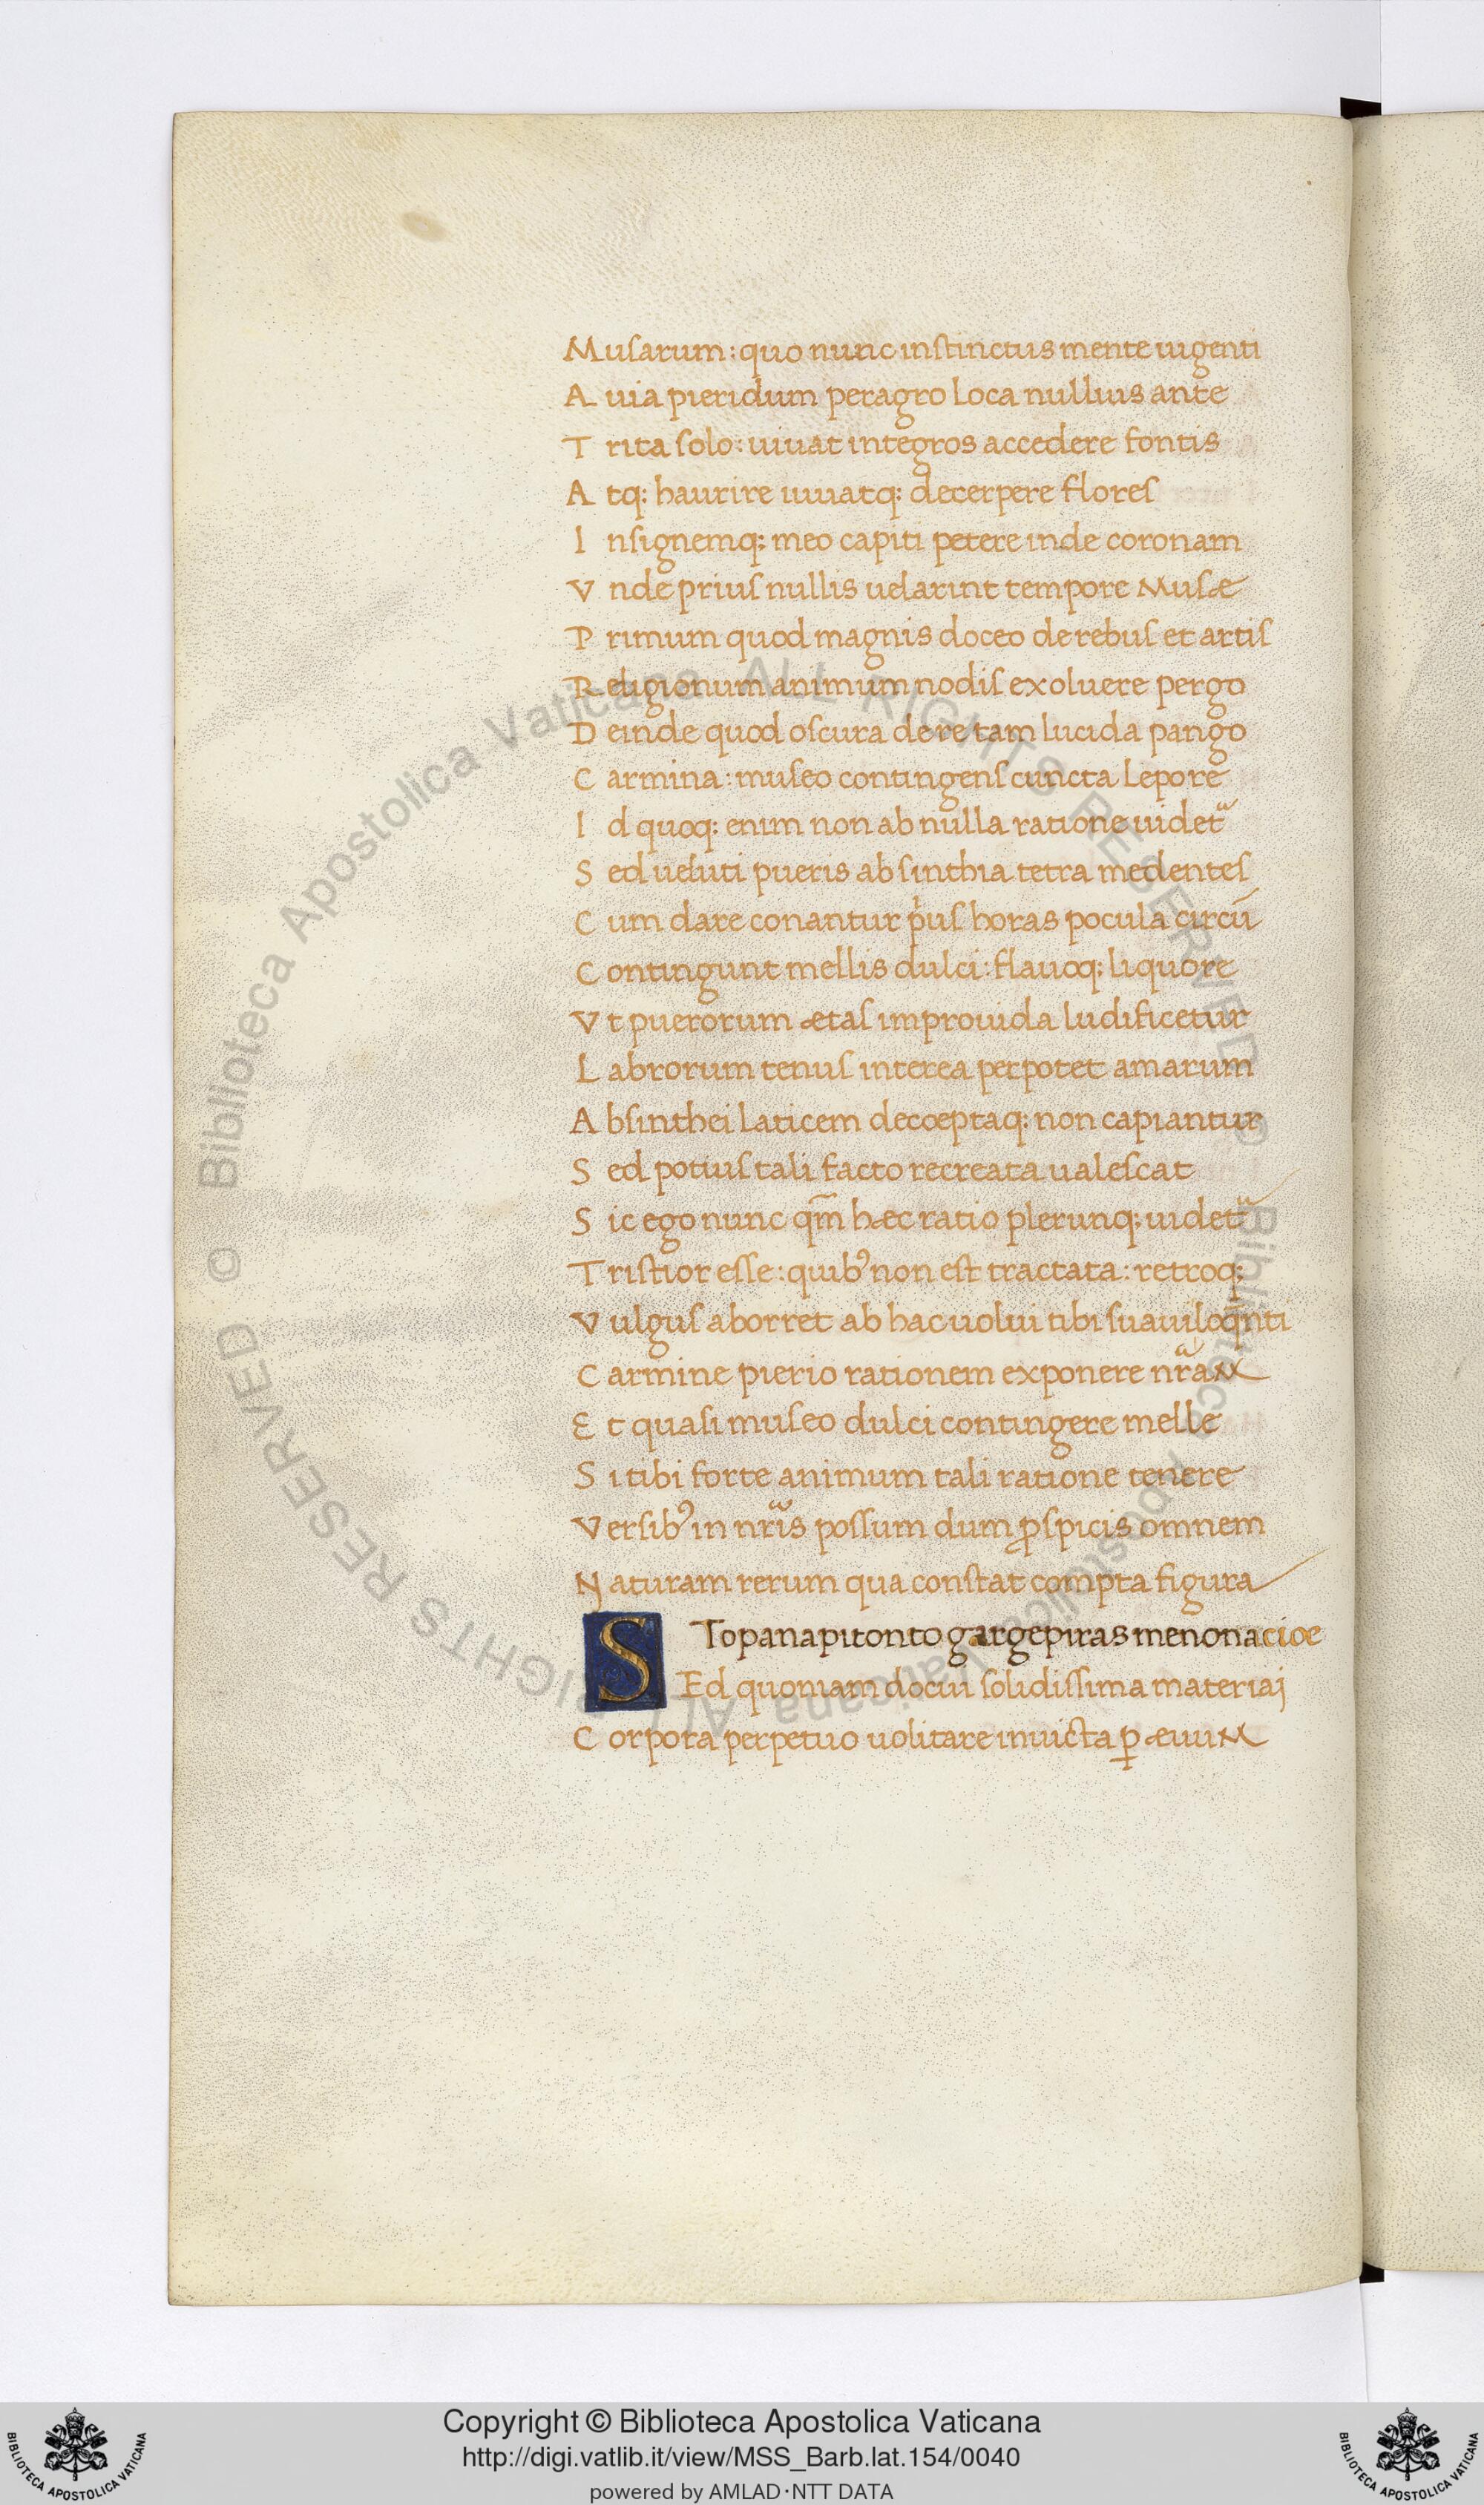 Musarum: quo nunc instinctus mente uigenti
Auia pieridum peragro loca nullius ante
Trita solo: uiuat integros accedere fontis
Atq; haurire iuuatq; decerpere flores
Insignemq; meo capiti petere inde coronam
Vnde prius nullis uelarint tempore Musæ
Primum quod magnis doceo de rebus et artis
Religionum animum nodis exoluere pergo
Deinde quod oscura de re tam lucida pango
Carmina: museo contingens cuncta lepore
Id quoq; enim non ab nulla ratione uidet᷑
Sed ueluti pueris absinthia tetra medentes
Cum dare conantur pͥus horas pocula circū
Contingunt mellis dulci: flauoq; liquore
Vt puerorum ætas improuida ludificetur
Labrorum tenus interea perpotet amarum
Absinthei laticem decoeptaq; non capiantur
Sed potius tali facto recreata ualescat
Sic ego nunc qm̄ hæc ratio plerunq; uidet᷑
Tristior esse: quibꝰ non est tractata: retroq;
Vulgus aborret ab hac uolui tibi suauiloq̄nti
Carmine pierio rationem exponere nr̃aM
Et quasi museo dulci contingere melle
Si tibi forte animum tali ratione tenere
Versibꝰ in nr̃is possum dum ꝑspicis omnem
Naturam rerum qua constat compta figura
Topanapitonto gargepiras menonacioe
SEd quoniam docui solidissima materiaj
Corpora perpetuo uolitare inuicta ꝑ æuuM
© Biblioteca Apostolica Vaticana ALL RIGHTS RESERVED
© Biblioteca Apostolica Vaticana ALL RIGHTS RESERVED
Copyright © Biblioteca Apostolica Vaticana
http://digi.vatlib.it/view/MSS_Barb.lat.154/0040
powered by AMLAD·NTT DATA
BIBLIOTECA APOSTOLICA VATICANA
BIBLIOTECA APOSTOLICA VATICANA